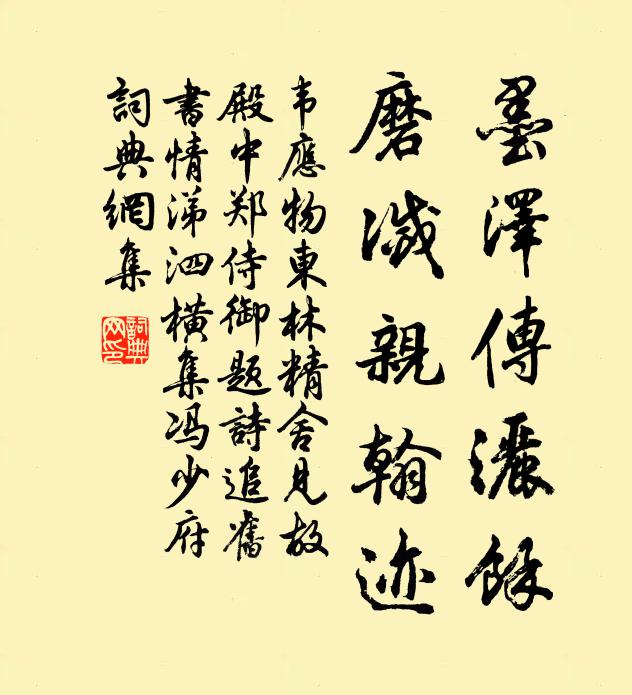 墨澤傳灑餘
磨滅親翰迹
韦應物東林精舍見故
殿中郑侍御题詩追舊
書情涕泗橫集冯少府
詞典網集
詞典網印